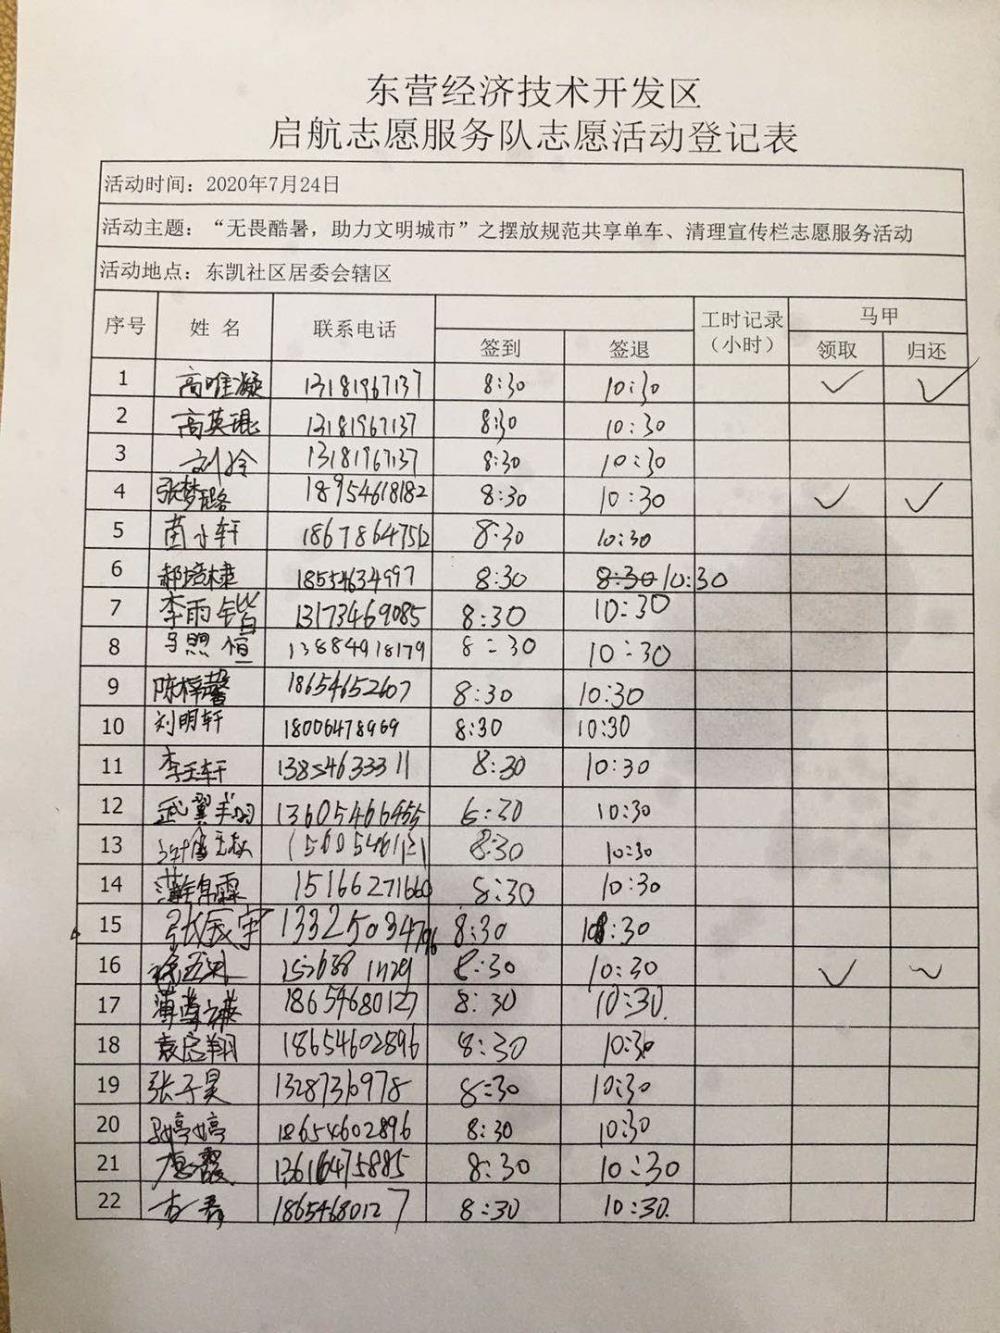 东营经济技术开发区
启航志愿服务队志愿活动登记表
活动时间：2020年7月24日
活动主题：“无畏酷暑，助力文明城市”之摆放规范共享单车、清理宣传栏志愿服务活动
活动地点：东凯社区居委会辖区
序号 姓 名 联系电话 签到 签退 工时记录（小时） 马甲 领取 归还
1 高唯凝 13181967137 8:30 10:30 ✓ ✓
2 高英琨 13181967137 8:30 10:30
3 刘玲 13181967137 8:30 10:30
4 张梦璐 18954618182 8:30 10:30 ✓ ✓
5 苗小轩 18678647512 8:30 10:30
6 郝培棣 18554634997 8:30 8:30 10:30
7 李雨锴 13173469085 8:30 10:30
8 马煦恒 13884918179 8:30 10:30
9 陈梓馨 18654652607 8:30 10:30
10 刘明轩 18006478969 8:30 10:30
11 李玉轩 13854633311 8:30 10:30
12 武翼 13605466455 8:30 10:30
13 15605461121 8:30 10:30
14 15166271660 8:30 10:30
15 张宸宇 13325034796 8:30 10:30
16 8:30 10:30 ✓ ~
17 18654680127 8:30 10:30
18 袁启翔 18654602896 8:30 10:30
19 张子昊 1328736978 8:30 10:30
20 婷婷 18654602896 8:30 10:30
21 13616475885 8:30 10:30
22 18654680127 8:30 10:30